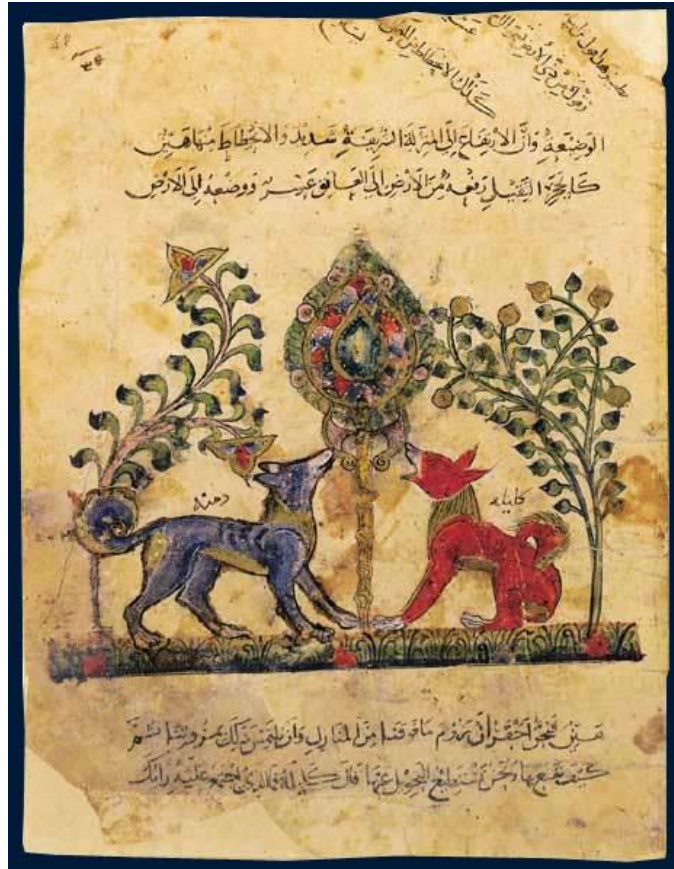 كذلك الانحطاط من
الوضيعة وان الارتفاع إلى المنزلة الشريفة شديد والانحطاط منها هين
كالحجر الثقيل رفعه من الأرض إلى العاتق عسر ووضعه إلى الأرض
دمنه
كليله
فنحن احق ان نروم ما فوقنا من المنازل وان نلتمس ذلك بمروءتنا ثم
كيف نقنع بها ونحن نستطيع التحويل عنها قال كليلة فما الذي اجتمع عليه رأيك